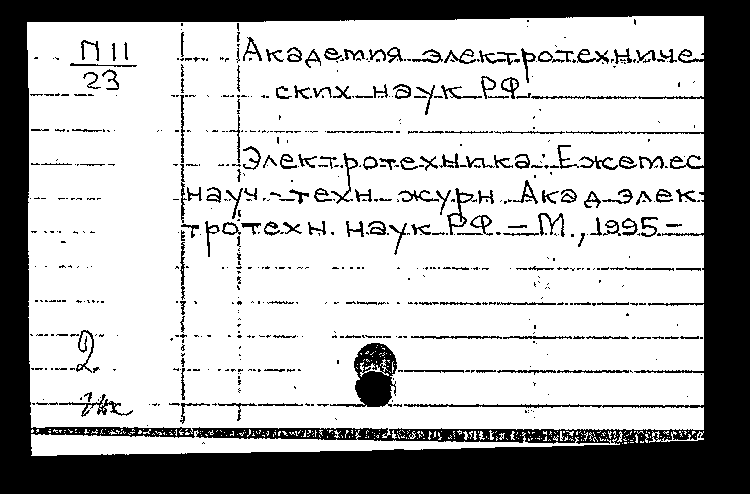 П 11
23
Академия электротехниче-
ских наук РФ.
Электротехника: Ежемес
науч.-техн. журн. Акад. элек-
тротехн. наук РФ. – М., 1995 –
2